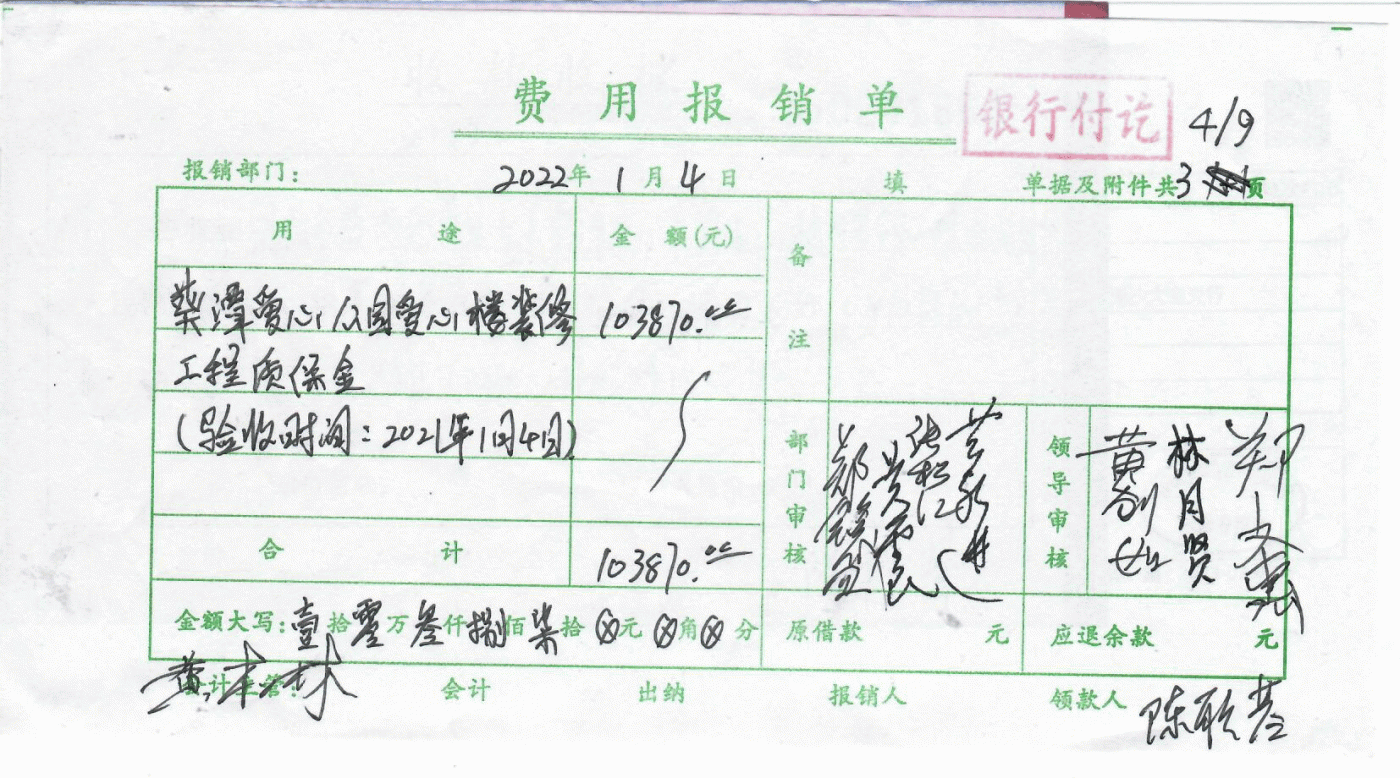 费用报销单
银行付讫
4/9
报销部门: 2022年1月4日 填 单据及附件共3 页
用途 金额(元) 备注
柴潭爱心公园爱心楼装修 103870.00
工程质保金
(验收时间:2021年1月4日)
部门审核 领导审核 林月贤
合计 103870.00
金额大写:壹拾零万叁仟捌佰柒拾⊗元⊗角⊗分 原借款 元 应退余款 元
会计主管: 会计 出纳 报销人 领款人